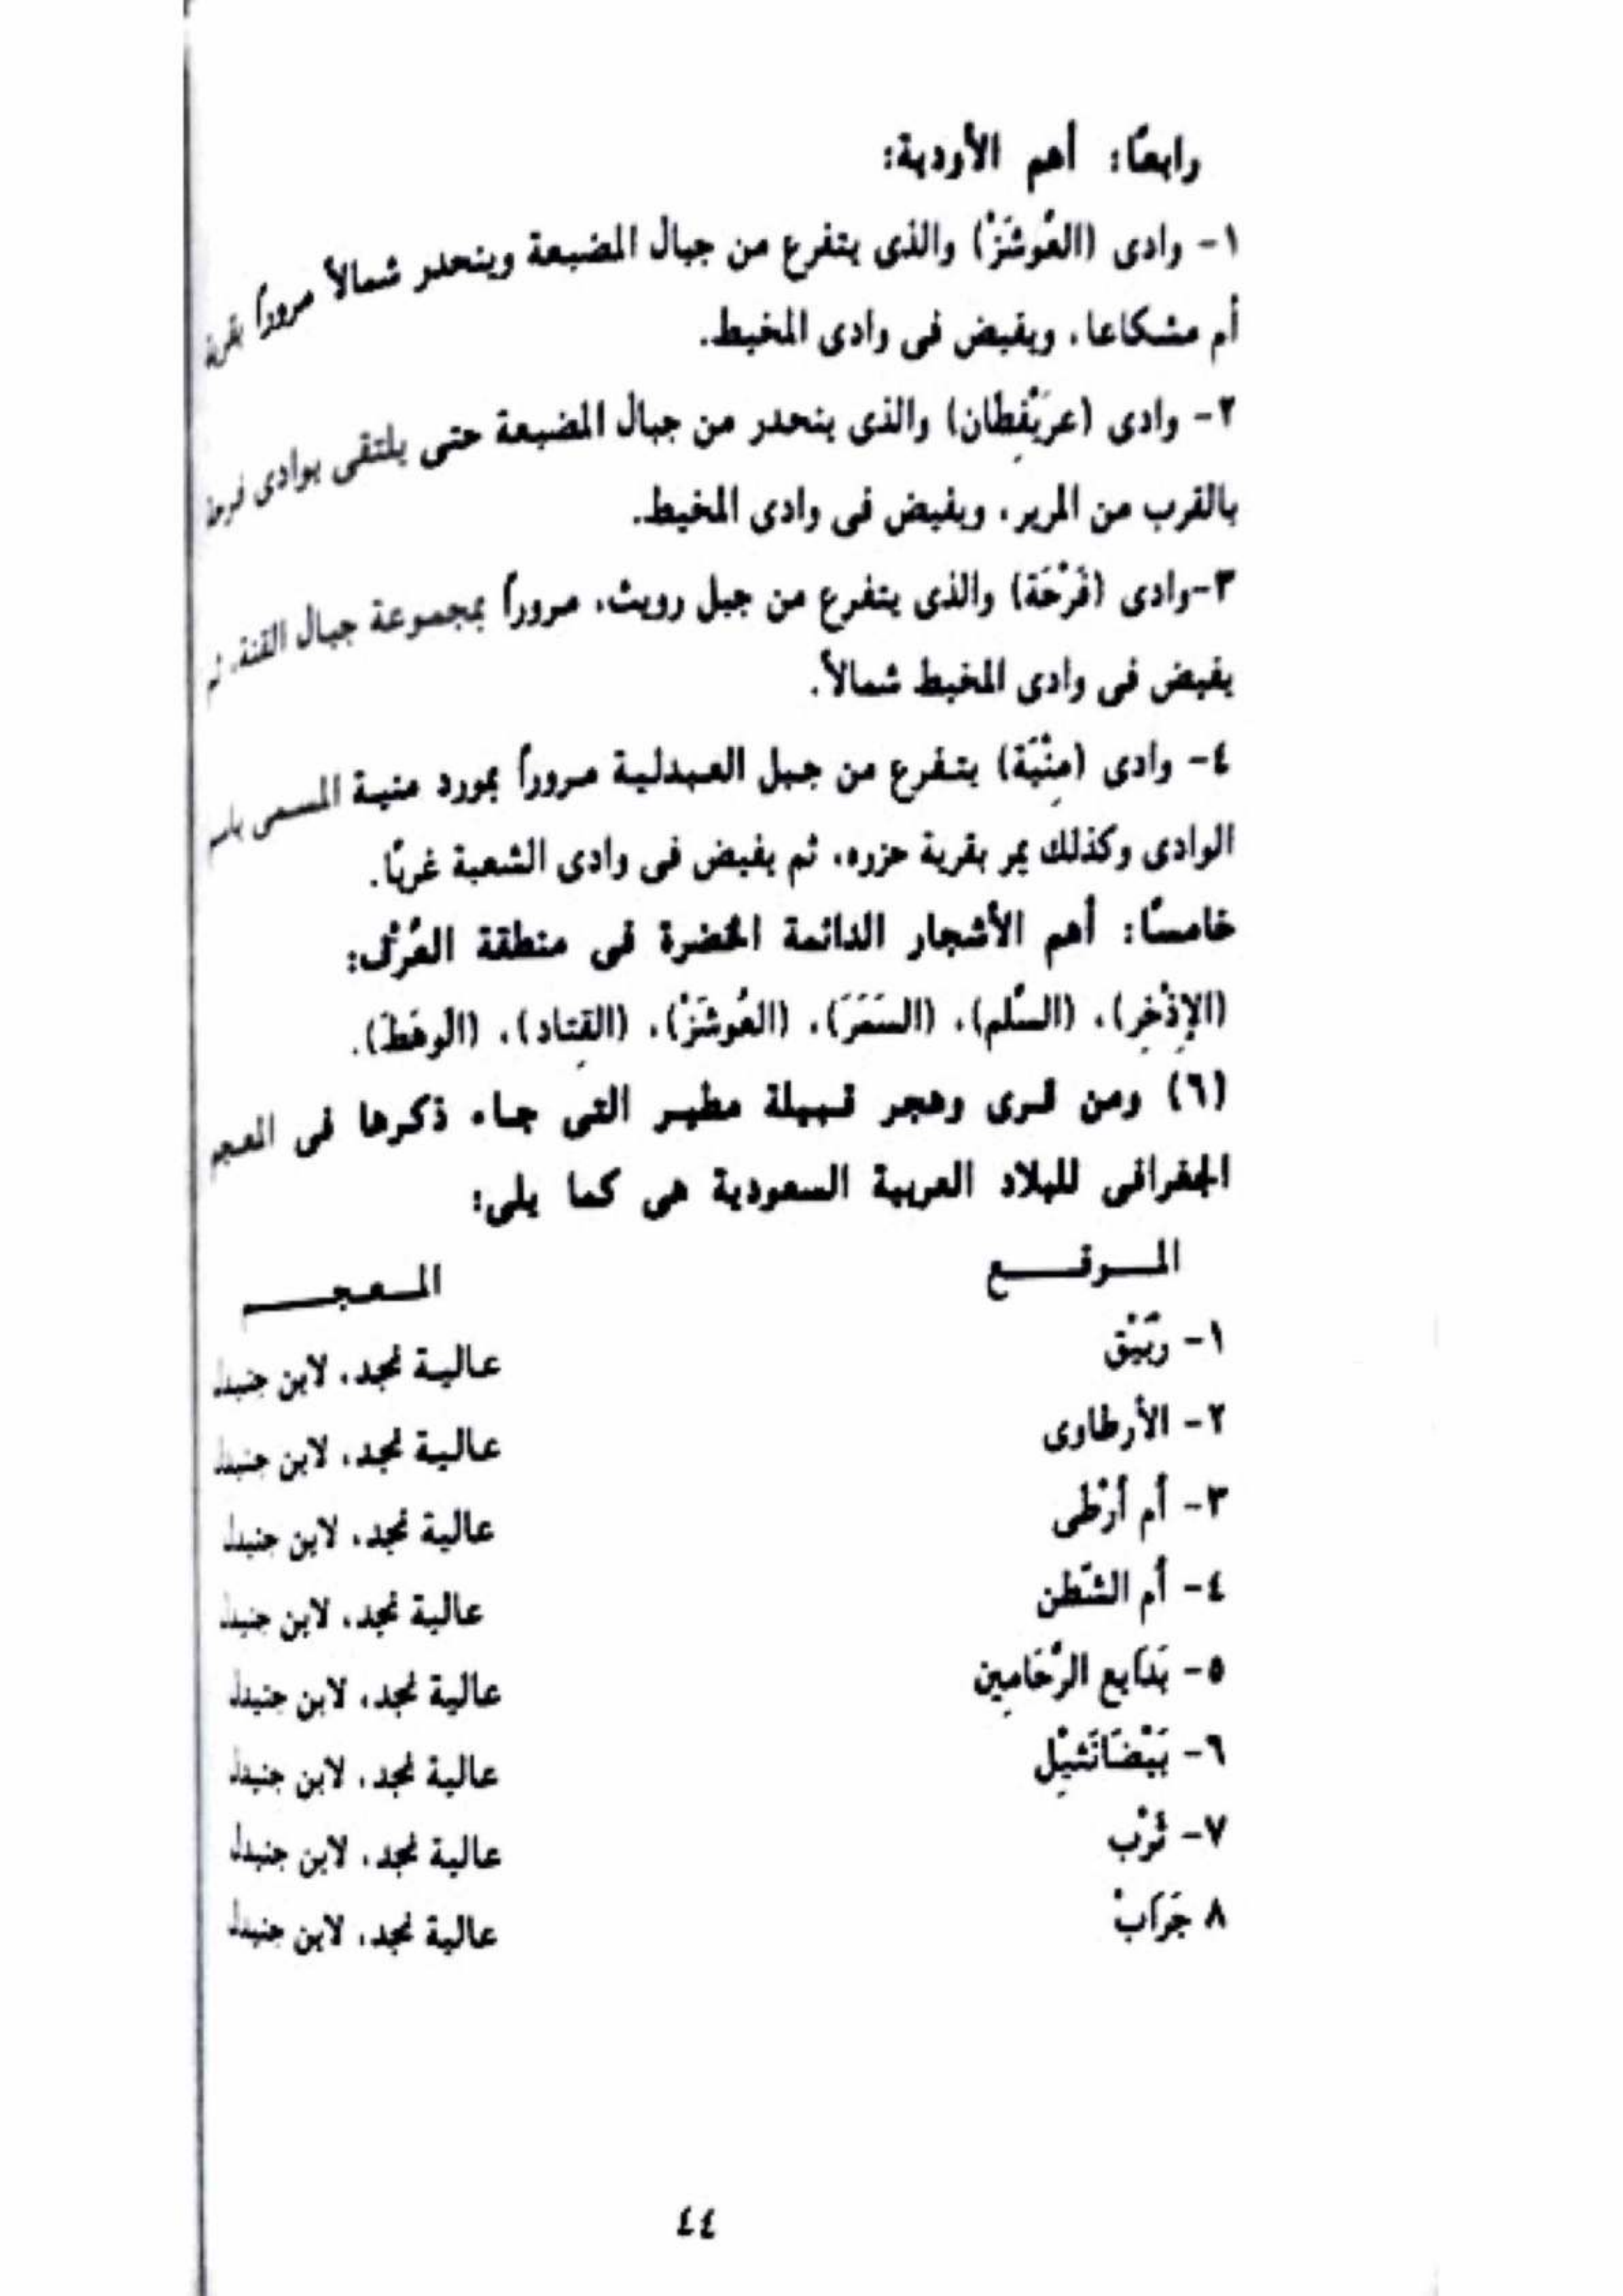 رابعًا: أهم الأودية:
١- وادى (العُوشَزْ) والذى يتفرع من جبال المضيعة وينحدر شمالاً مرورًا بقرية
أم مشكاعا، ويفيض فى وادى المخيط.
٢- وادى (عريَفِْطان) والذى ينحدر من جبال المضيعة حتى يلتقى بوادى فرحة
بالقرب من المرير، ويفيض فى وادى المخيط.
٣-وادى (فَرْحَة) والذى يتفرع من جبل رويث، مرورًا بمجموعة جبال القنة، ثم
يفيض فى وادى المخيط شمالاً.
٤- وادى (مِنْيَة) يتفرع من جبل العبدلية مرورًا بمورد منية المسمى باسم
الوادى وكذلك يمر بقرية حزره، ثم يفيض فى وادى الشعبة غربًا.
خامسًا: أهم الأشجار الدائمة الخضرة فى منطقة
(الإِذْخِر)، (السَّلم)، (السَمَرَ)، (العُوشَزْ)، (القِتاد)، (الوهَطَ).
(٦) ومن قرى وهجر قبيلة مطير التى جاء ذكرها فى المعجم
الجغرافى للبلاد العربية السعودية هى كما يلى:
الموقع المعجم
١- عالية نجد، لابن جنيدل
٢- الأرطاوى عالية نجد، لابن جنيدل
٣- أم أرْطى عالية نجد، لابن جنيدل
٤- أم الشّطن عالية نجد، لابن جنيدل
٥- بَدَايع الرَّحَامِين عالية نجد، لابن جنيدل
٦- بَيْضَانَثِيْل عالية نجد، لابن جنيدل
٧- ثَرْب عالية نجد، لابن جنيدل
٨ جَرَابْ عالية نجد، لابن جنيدل
٤٤